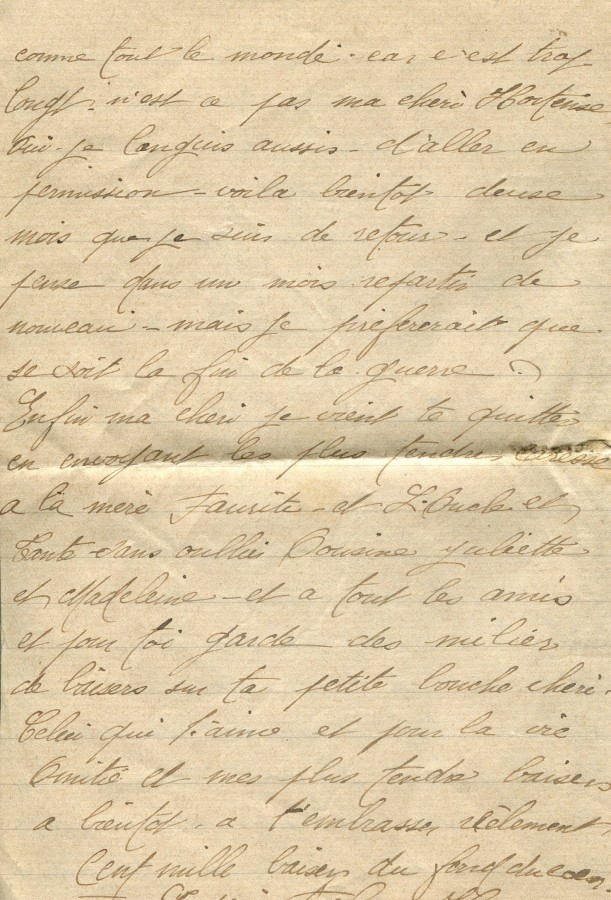 comme tout le monde. car c'est trop
long. n'est ce pas ma cheri Hortense
Oui. je languis aussis - d'aller en
permission - voila bientot deuse
mois que je suis de retour - et je
pense dans un mois repartir de
nouveau - mais je prefererait que
se soit la fin de la guerre.
Enfin ma cheri je vient te quitter
en envoyant les plus tendres caresse
a la mere et L'Oncle et
Tante sans oublier Cousine Juliette
et Madeleine - et a tout les amis
et pour toi garde des milier
de baisers sur ta petite bouche cheri
Celui qui t'aime et pour la vie
Amitié et mes plus tendre baisers
a bientot. a t'embrasser réelement
Cent mille baiser du fond du coeur.